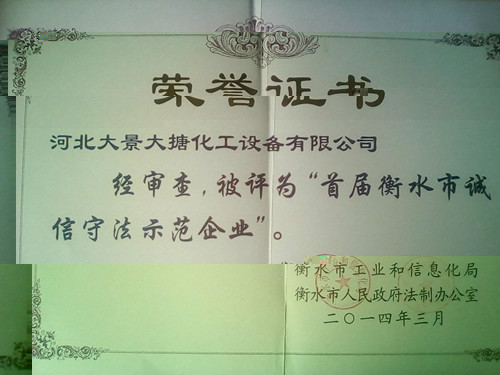 荣誉证书
河北大景大搪化工设备有限公司
经审查，被评为“首届衡水市诚
信守法示范企业”。
衡水市工业和信息化局
衡水市人民政府法制办公室
二〇一四年三月